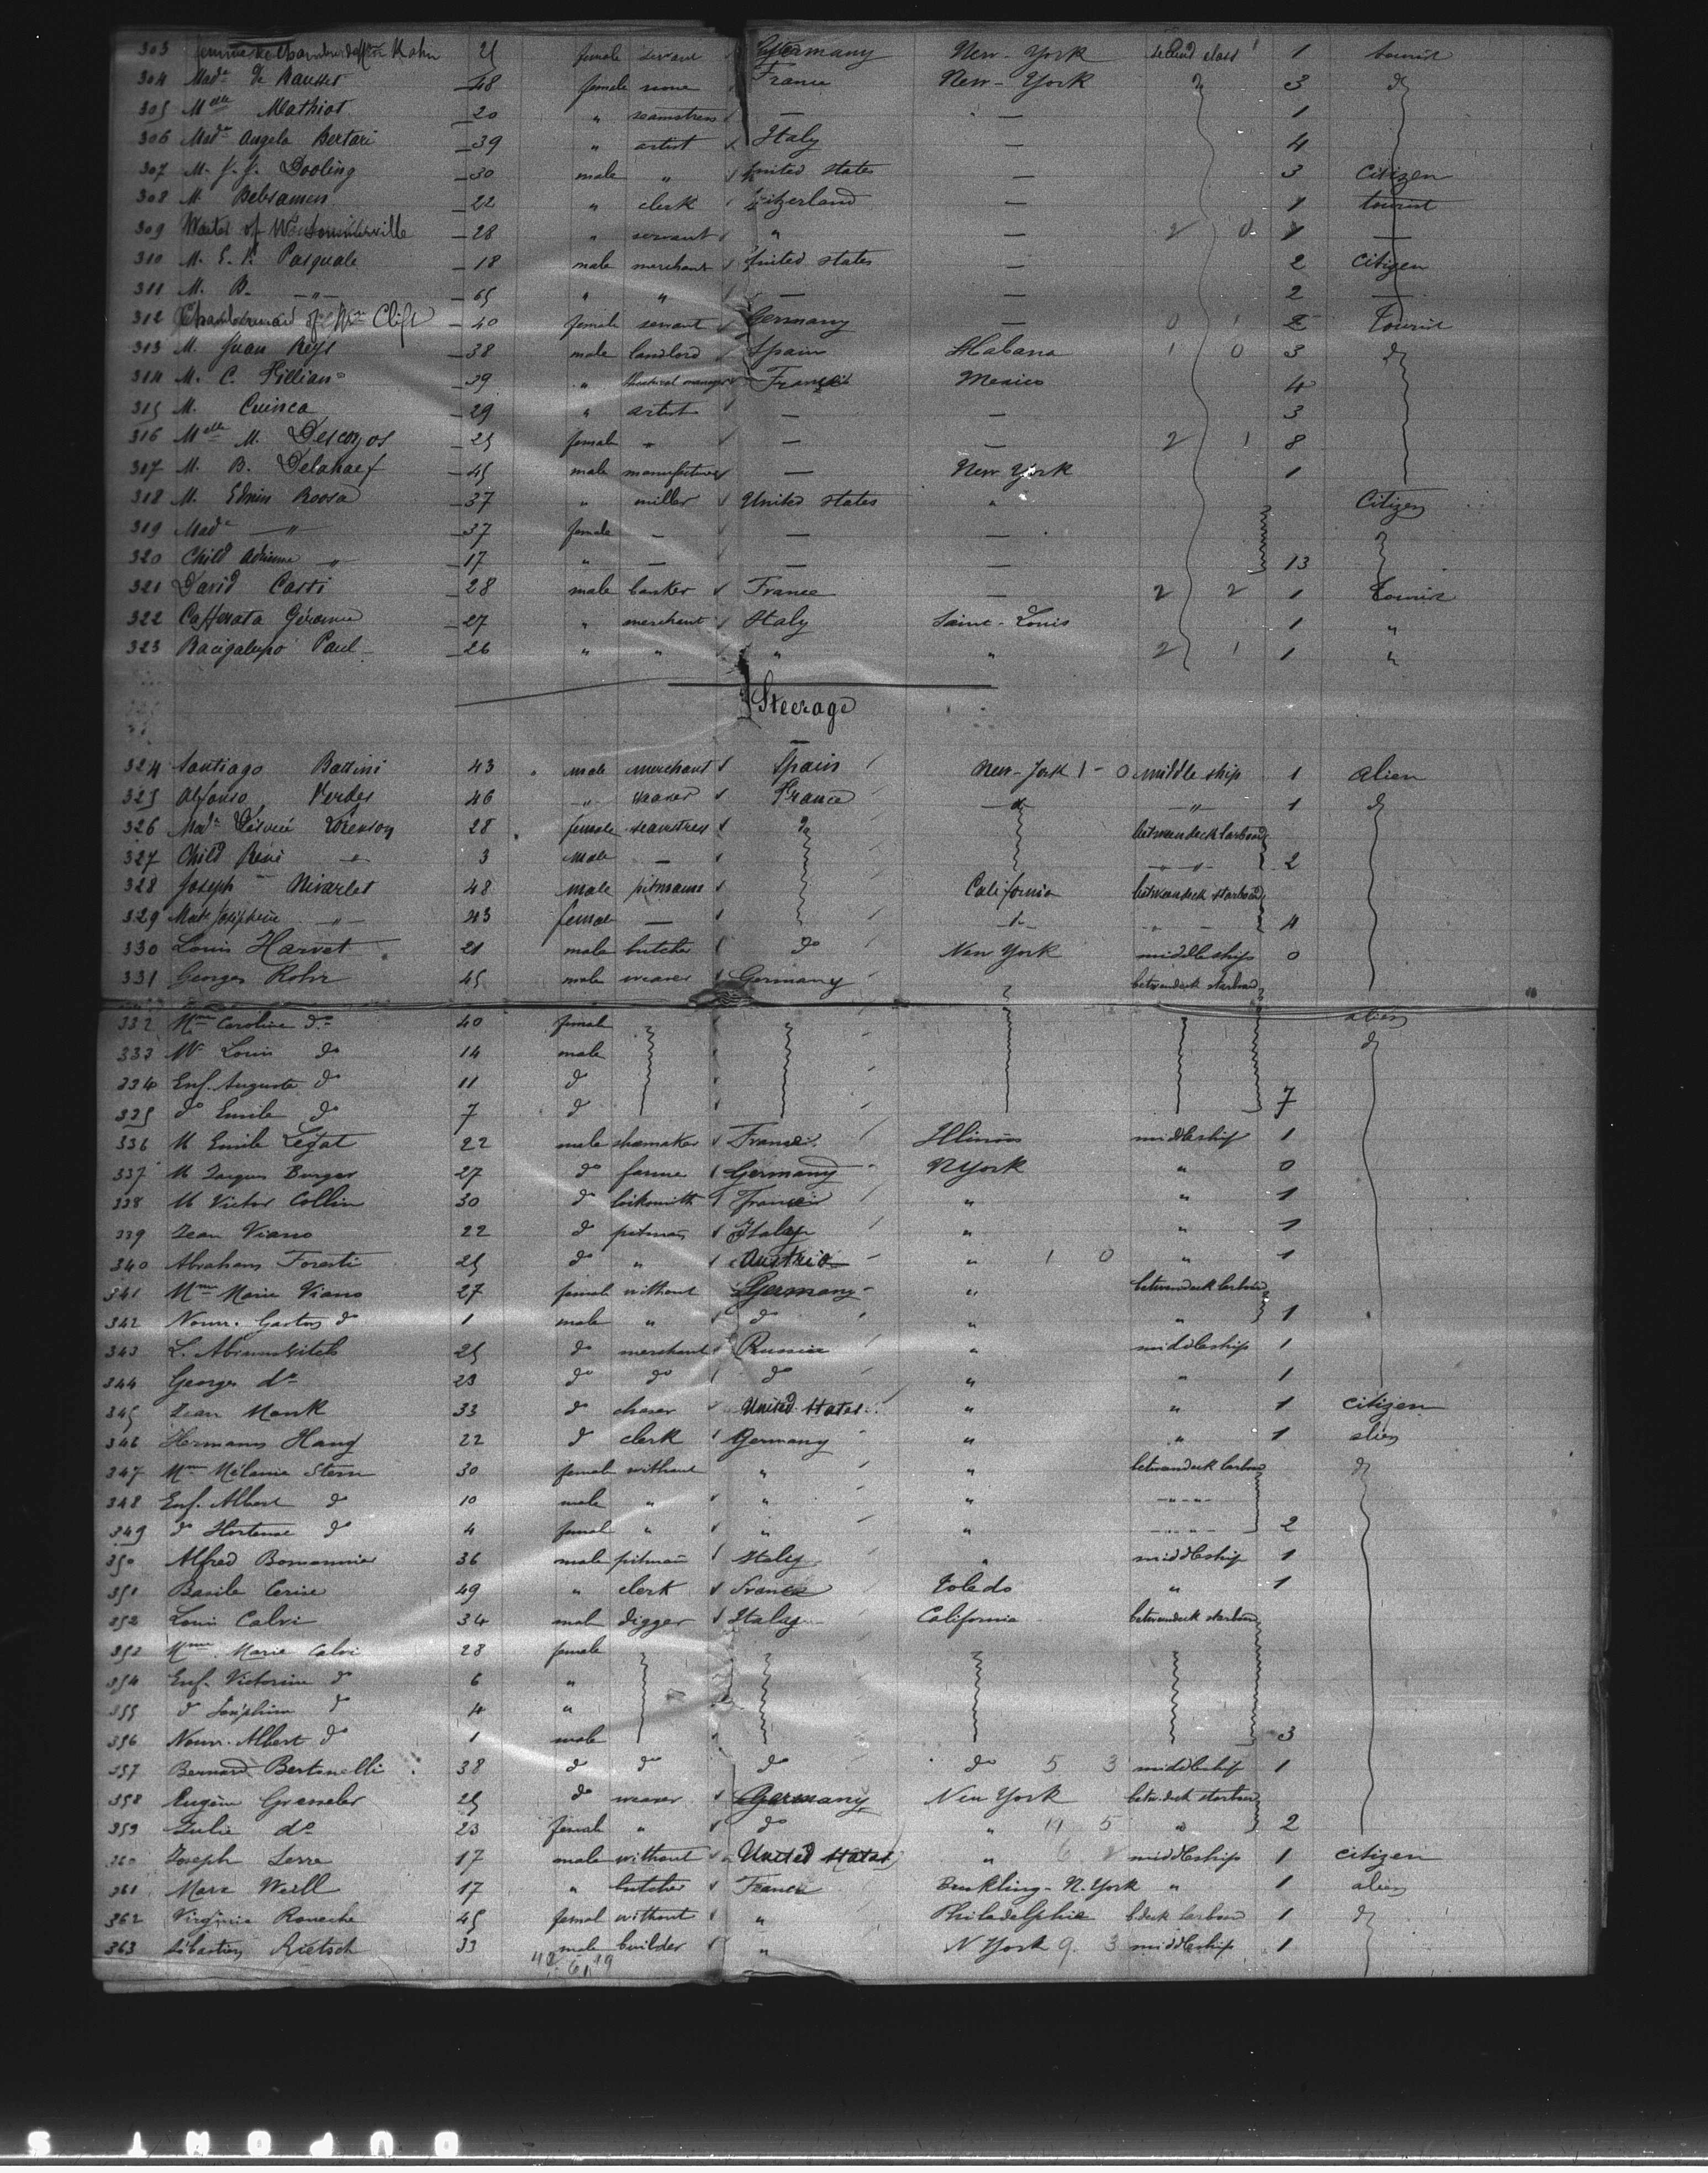 303 femme de Chambre de Mme Kahn 25 female servant Germany New-York second class 1 tourist
304 Made de 48 female none France New-York 3 do
305 Melle Mathiot 20 " seamstress — — 1
306 Made Angela Bertari 39 " artist Italy — 4
307 M. J. J. Dooling 30 male " United States — 3 Citizen
308 M. Belsamen 22 " clerk — 1 tourist
309 of 28 " servant " — 2 0 1 —
310 M. E. P. Pasquale 18 male merchant United States — 2 Citizen
311 M. B. —"— 65 " " — — 2 —
312 of Mrs Clift 40 female servant Germany — 0 1 2 Tourist
313 M. Juan Reys 38 male landlord Spain Habana 1 0 3 do
314 M. C. 39 " theatrical manager France Mexico 4
315 M. Cuinca 29 " artist — — 3
316 Melle M. 25 female " — — 2 1 8
317 M. B. 45 male manufacturer — New York 1
318 M. Edwin 37 " miller United States " Citizen
319 Made —"— 37 female — — —
320 Child Adrienne " 17 " — — — 13
321 David Casti 28 male banker France — 2 2 1 Tourist
322 Cafferata Gérôme 27 " merchant Italy Saint-Louis 1 "
323 Bacigalupo Paul 26 " " " " 2 1 1 "
Steerage
324 Santiago Battini 43 male merchant Spain New-York 1 - 0 middle ship 1 alien
325 Alfonso Verdes 46 " weaver France do " 1 do
326 Made 28 female seamstress do betweendeck larboard
327 Child René " 3 Male — " 2
328 Joseph Nivarlet 48 male pitmann California betweendeck starboard
329 Made Joséphine " 43 female — " " 4
330 Louis Harvet 21 male butcher do New York middleship 0
331 Georges Rohr 45 male weaver Germany betweendeck starboard
332 Mme Caroline do 40 female alien
333 Mr Louis do 14 male do
334 Enf. Auguste do 11 do
335 do Emile do 7 do 7
336 M Emile Legat 22 male shoemaker France Illinois middleship 1
337 M Jacques Burger 27 do Germany N York " 0
338 M Victor Collin 30 do locksmith France " " 1
339 Jean Viano 22 do pitman Italy " " 1
340 Abraham Foresti 25 do " Austria " 1 0 " 1
341 Mme Marie Viano 27 female without Germany " betweendeck larboard
342 Nourr. Gaston do 1 male " do " " 1
343 L. 25 do merchant Russia " middleship 1
344 Georges do 23 do do do " " 1
345 Jean Monk 33 do United States " " 1 citizen
346 Hermann Haug 22 do clerk Germany " " 1 alien
347 Mme Mélanie Stern 30 female without " " betweendeck larboard do
348 Enf. Albert do 10 male " " " "
349 do Hortense do 4 female " " " " 2
350 Alfred 36 male pitman Italy " middleship 1
351 Basile Cerise 49 " clerk France Toledo " 1
352 Louis Calvi 34 male digger Italy California betweendeck starboard
353 Mme Marie Calvi 28 female
354 Enf. Victorine do 6 "
355 do Joséphine do 4 "
356 Nourr. Albert do 1 male 3
357 Bernard Bertonelli 38 do do do do 5 3 middleship 1
358 Eugène 25 do weaver Germany New York betw.deck starboard
359 Julie do 23 female " do " 11 5 " 2
360 Joseph Serre 17 male without United States " 6 middleship 1 citizen
361 Marx Weill 17 " butcher France Bruckling-N. York " 1 alien
362 Virginie 45 femal without " Philadelphie bdeck larboard 1 do
363 Sébastien Rietsch 33 male builder " N York 9 3 middleship 1